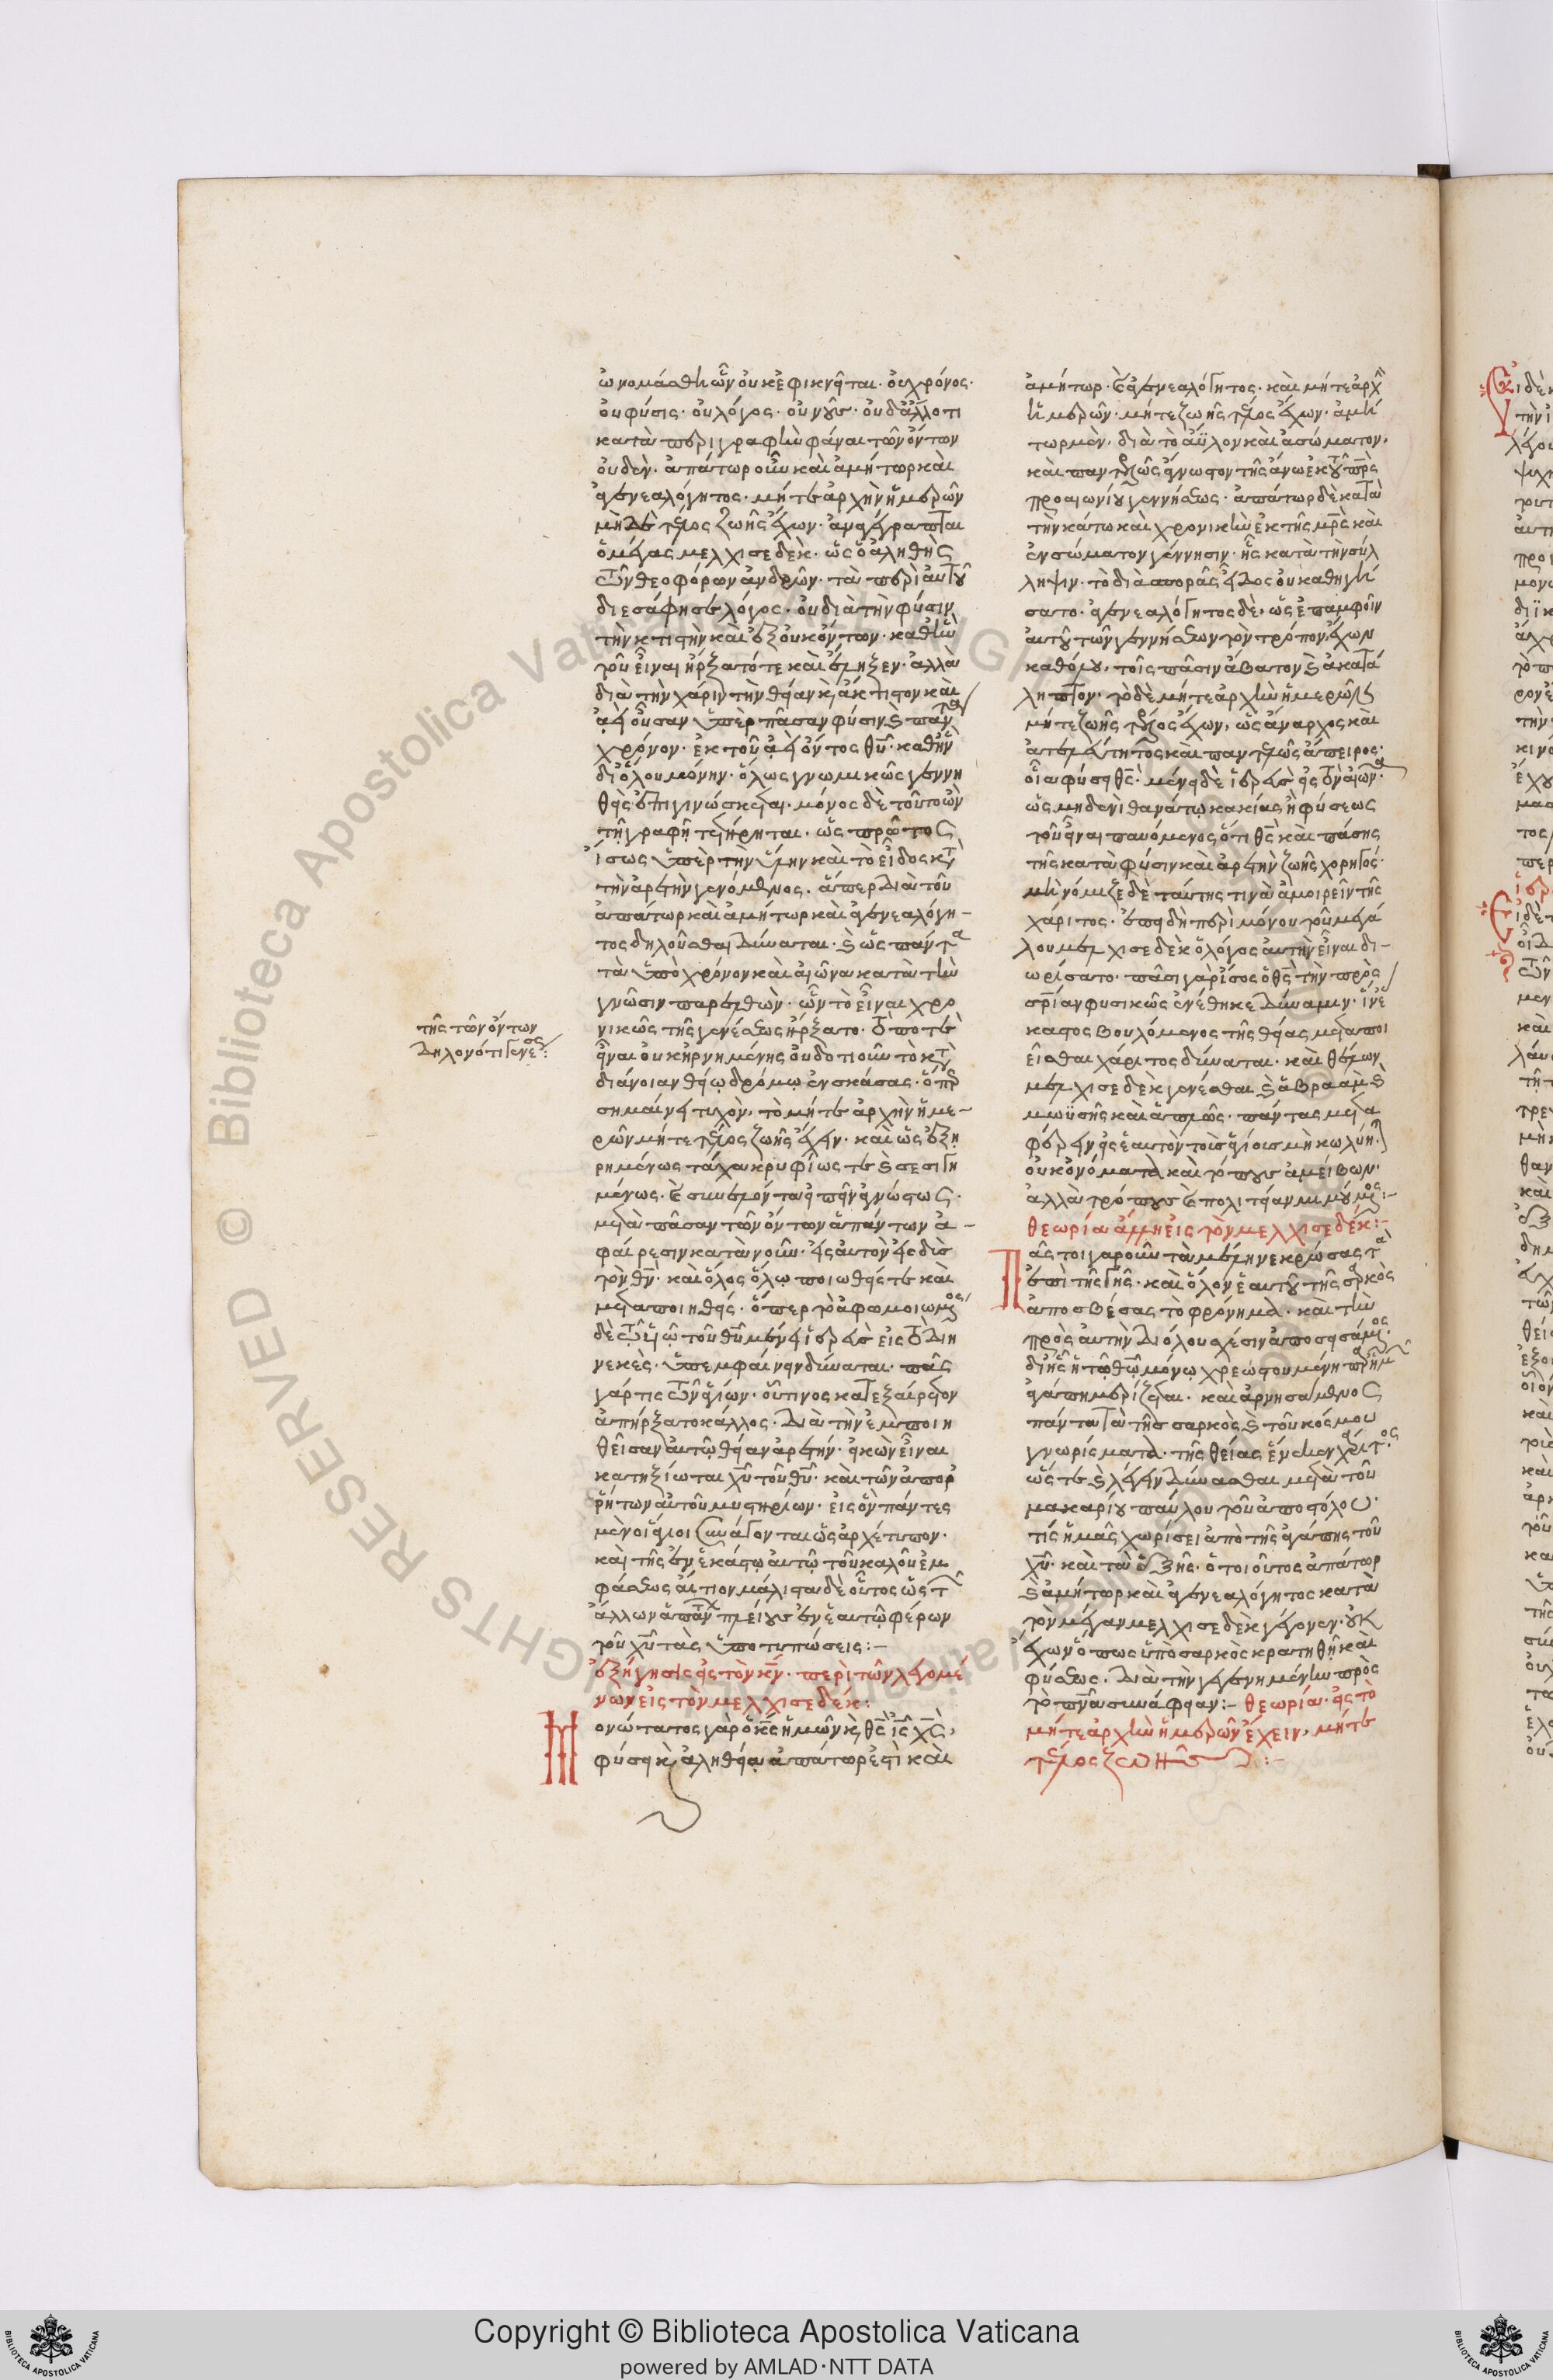 ὠνομάσθη ὧν οὐκ ἐφικνεῖται· οὐ χρόνος·
οὐ φύσις· οὐ λόγος· οὐ νοῦς· οὐδ' ἄλλό τι
κατὰ περιγραφὴν φάναι τῶν ὄντων
οὐδέν· ἀπάτωρ οὖν καὶ ἀμήτωρ καὶ
ἀγενεαλόγητος· μήτε ἀρχὴν ἡμερῶν
μὴδὲ τέλος ζωῆς ἔχων· ἀναγέγραπται
ὁ μέγας μελχισεδέκ· ὡς ὁ ἀληθὴς
τῶν θεοφόρων ἀνδρῶν· τὰ περὶ αὐτοῦ
διεσάφησε λόγος· οὐ διὰ τὴν φύσιν
τὴν κτιστὴν καὶ ἐξ οὐκ ὄντων· καθ' ἣν
τοῦ εἶναι ἤρξατό τε καὶ ἔληξεν· ἀλλὰ
διὰ τὴν χάριν τὴν θείαν καὶ ἄκτιστον καὶ
ἀεὶ οὖσαν ὑπὲρ πᾶσαν φύσιν καὶ πάντα
χρόνον· ἐκ τοῦ ἀεὶ ὄντος θῦ· καθ' ἣν
δι' ὅλου μόνην· ὅλως γνωμικῶς γεννη
θεὶς ἐπιγινώσκεται· μόνος δὲ τοῦτο ὢν
τῇ γραφῇ τετήρηται· ὡς πρῶτος
ἴσως ὑπὲρ τὴν ὕλην καὶ τὸ εἶδος κτ
τὴν ἀρετὴν γενόμενος· ἅπερ διὰ τοῦ
ἀπάτωρ καὶ ἀμήτωρ καὶ ἀγενεαλόγη-
τος δηλοῦσθαι δύναται· καὶ ὡς πάντα
τὰ ὑπὸ χρόνον καὶ αἰῶνα κατὰ τὴν
γνῶσιν παρελθών· ὧν τὸ εἶναι χρο
νικῶς τῆς γενέσεως ἤρξατο· τὸ ποτὲ
εἶναι οὐκ ἠρνημένης οὐδοτιοῦν τὸ κτ
διάνοιαν θείῳ δρόμῳ ἐνσκάσας· ὅπερ
σημαίνει τυχὸν, τὸ μήτε ἀρχὴν ἡμε-
ρῶν μήτε τέλος ζωῆς ἔχειν· καὶ ὡς ἐξῃ
ρημένως τάχα κρυφίως τε καὶ σεσιγη
μένως· καὶ συνελόντα εἰπεῖν ἀγνώστως·
μετὰ πᾶσαν τῶν ὄντων ἁπάντων ἀ-
φαίρεσιν κατὰ νοῦν· εἰς αὐτὸν εἰσδὺς
τὸν θν· καὶ ὅλος ὅλῳ ποιωθείς τε καὶ
μεταποιηθείς· ὅπερ τὸ ἀφωμοιωμένος
δὲ τῷ υἱῷ τοῦ θῦ μένει ἱερεὺς εἰς τὸ διη
νεκὲς· ὑπεμφαίνειν δύναται· πᾶς
γάρ τις τῶν ἁγίων· οὗτινος κατεξαίρετον
ἀπήρξατο κάλλος· διὰ τὴν ἐμποιη
θεῖσαν αὐτῷ θείαν ἀρετήν· εἰκὼν εἶναι
κατηξίωται χῦ τοῦ θῦ· καὶ τῶν ἀπορ
ρήτων αὐτοῦ μυστηρίων· εἰς ὃν πάντες
μὲν οἱ ἅγιοι συνάγονται ὡς ἀρχέτυπον·
καὶ τῆς ἐν ἑκάστῳ αὐτῷ τοῦ καλοῦ ἐμ
φάσεως αἴτιον μάλιστα δὲ οὗτος ὡς τῶν
ἄλλων ἁπάντων πλείους ἐν ἑαυτῷ φέρων
τοῦ χῦ τὰς ὑποτυπώσεις:-
ἐξήγησις εἰς τὸν κν· περὶ τῶν λεγομέ
νων εἰς τὸν μελχισεδέκ:
Μονώτατος γὰρ ὁ κς ἡμῶν καὶ θς ις χς,
φύσει καὶ ἀληθείᾳ ἀπάτωρ ἐστὶ καὶ
τῆς τῶν ὄντων
δηλονότι γενέσεως:
ἀμήτωρ· καὶ ἀγενεαλόγητος· καὶ μήτε ἀρχὴν
ἡμερῶν· μήτε ζωῆς τέλος ἔχων· ἀμή
τωρ μὲν· διὰ τὸ ἄϋλον καὶ ἀσώματον,
καὶ παντελῶς ἄγνωστον τῆς ἄνω ἐκ τοῦ πρς
προαιωνίου γεννήσεως· ἀπάτωρ δὲ κατὰ
τὴν κάτω καὶ χρονικὴν ἐκ τῆς μρς καὶ
ἐνσώματον γέννησιν· ἧς κατὰ τὴν σύλ
ληψιν· τὸ διὰ σπορᾶς εἶδος οὐ καθηγή
σατο· ἀγενεαλόγητος δὲ, ὡς ἐπαμφοῖν
αὐτοῦ τῶν γεννήσεων τὸν τρόπον ἔχων
καθόλου, τοῖς πᾶσιν ἄβατον καὶ ἀκατά
ληπτον· τὸ δὲ μήτε ἀρχὴν ἡμερῶν
μήτε ζωῆς τέλος ἔχων, ὡς ἄναρχος καὶ
ἀτελεύτητος καὶ παντελῶς ἄπειρος·
οἷα φύσει θς· μένει δὲ ἱερεὺς εἰς τὸν αἰῶνα·
ὡς μηδενὶ θανάτῳ κακίας ἢ φύσεως
τοῦ εἶναι παυόμενος ὅτι θς καὶ πάσης
τῆς κατὰ φύσιν καὶ ἀρετὴν ζωῆς χορηγός·
μὴ νόμιζε δὲ ταύτης τινὰ ἀμοιρεῖν τῆς
χάριτος· ἐπειδὴ περὶ μόνου τοῦ μεγά
λου μελχισεδὲκ ὁ λόγος αὐτὴν εἶναι δι-
ωρίσατο· πᾶσι γὰρ ἴσος ὁ θς τὴν πρὸς
σρίαν φυσικῶς ἐνέθηκε δύναμιν· ἵν' ἕ
καστος βουλόμενος τῆς θείας μεταποι
εῖσθαι χάριτος δύναται· καὶ θέλων
μελχισεδὲκ γενέσθαι καὶ ἀβραὰμ καὶ
μωϋσῆς καὶ ἁπλῶς· πάντας μετα
φέρειν εἰς ἑαυτὸν τοὺς ἁγίους μὴ κωλύηται
οὐκ ὀνόματα καὶ τόπους ἀμείβων·
ἀλλὰ τρόπους καὶ πολιτείαν μιμούμενος:-
θεωρία ἄλλη εἰς τὸν μελχισεδέκ:-
Πᾶς τοιγαροῦν τὰ μέλη νεκρώσας τὰ
ἐπὶ τῆς γῆς· καὶ ὅλον ἑαυτοῦ τῆς σαρκὸς
ἀποσβέσας τὸ φρόνημα· καὶ τὴν
πρὸς αὐτὴν διόλου σχέσιν ἀποσεισάμενος·
δι' ἧς ἡ τῷ θῷ μόνῳ χρεωστουμένη παρ' ἡμῶν
ἀγάπη μερίζεται· καὶ ἀρνησάμενος
πάντα τὰ τῆς σαρκὸς καὶ τοῦ κόσμου
γνωρίσματα· τῆς θείας ἕνεκεν χάριτος·
ὥς τε καὶ λέγειν δύνασθαι μετὰ τοῦ
μακαρίου παύλου τοῦ ἀποστόλου·
τίς ἡμᾶς χωρίσει ἀπὸ τῆς ἀγάπης τοῦ
χῦ· καὶ τὰ ἑξῆς· ὁ τοιοῦτος ἀπάτωρ
καὶ ἀμήτωρ καὶ ἀγενεαλόγητος κατὰ
τὸν μέγαν μελχισεδὲκ γέγονεν· οὐκ
ἔχων ὅπως ὑπὸ σαρκὸς κρατηθῇ καὶ
φύσεως· διὰ τὴν γεγενημένην πρὸς
τὸ πνα συνάφειαν:- θεωρία· εἰς τὸ
μήτε ἀρχὴν ἡμερῶν ἔχειν, μήτε
τέλος ζωῆς:
Copyright © Biblioteca Apostolica Vaticana
powered by AMLAD·NTT DATA